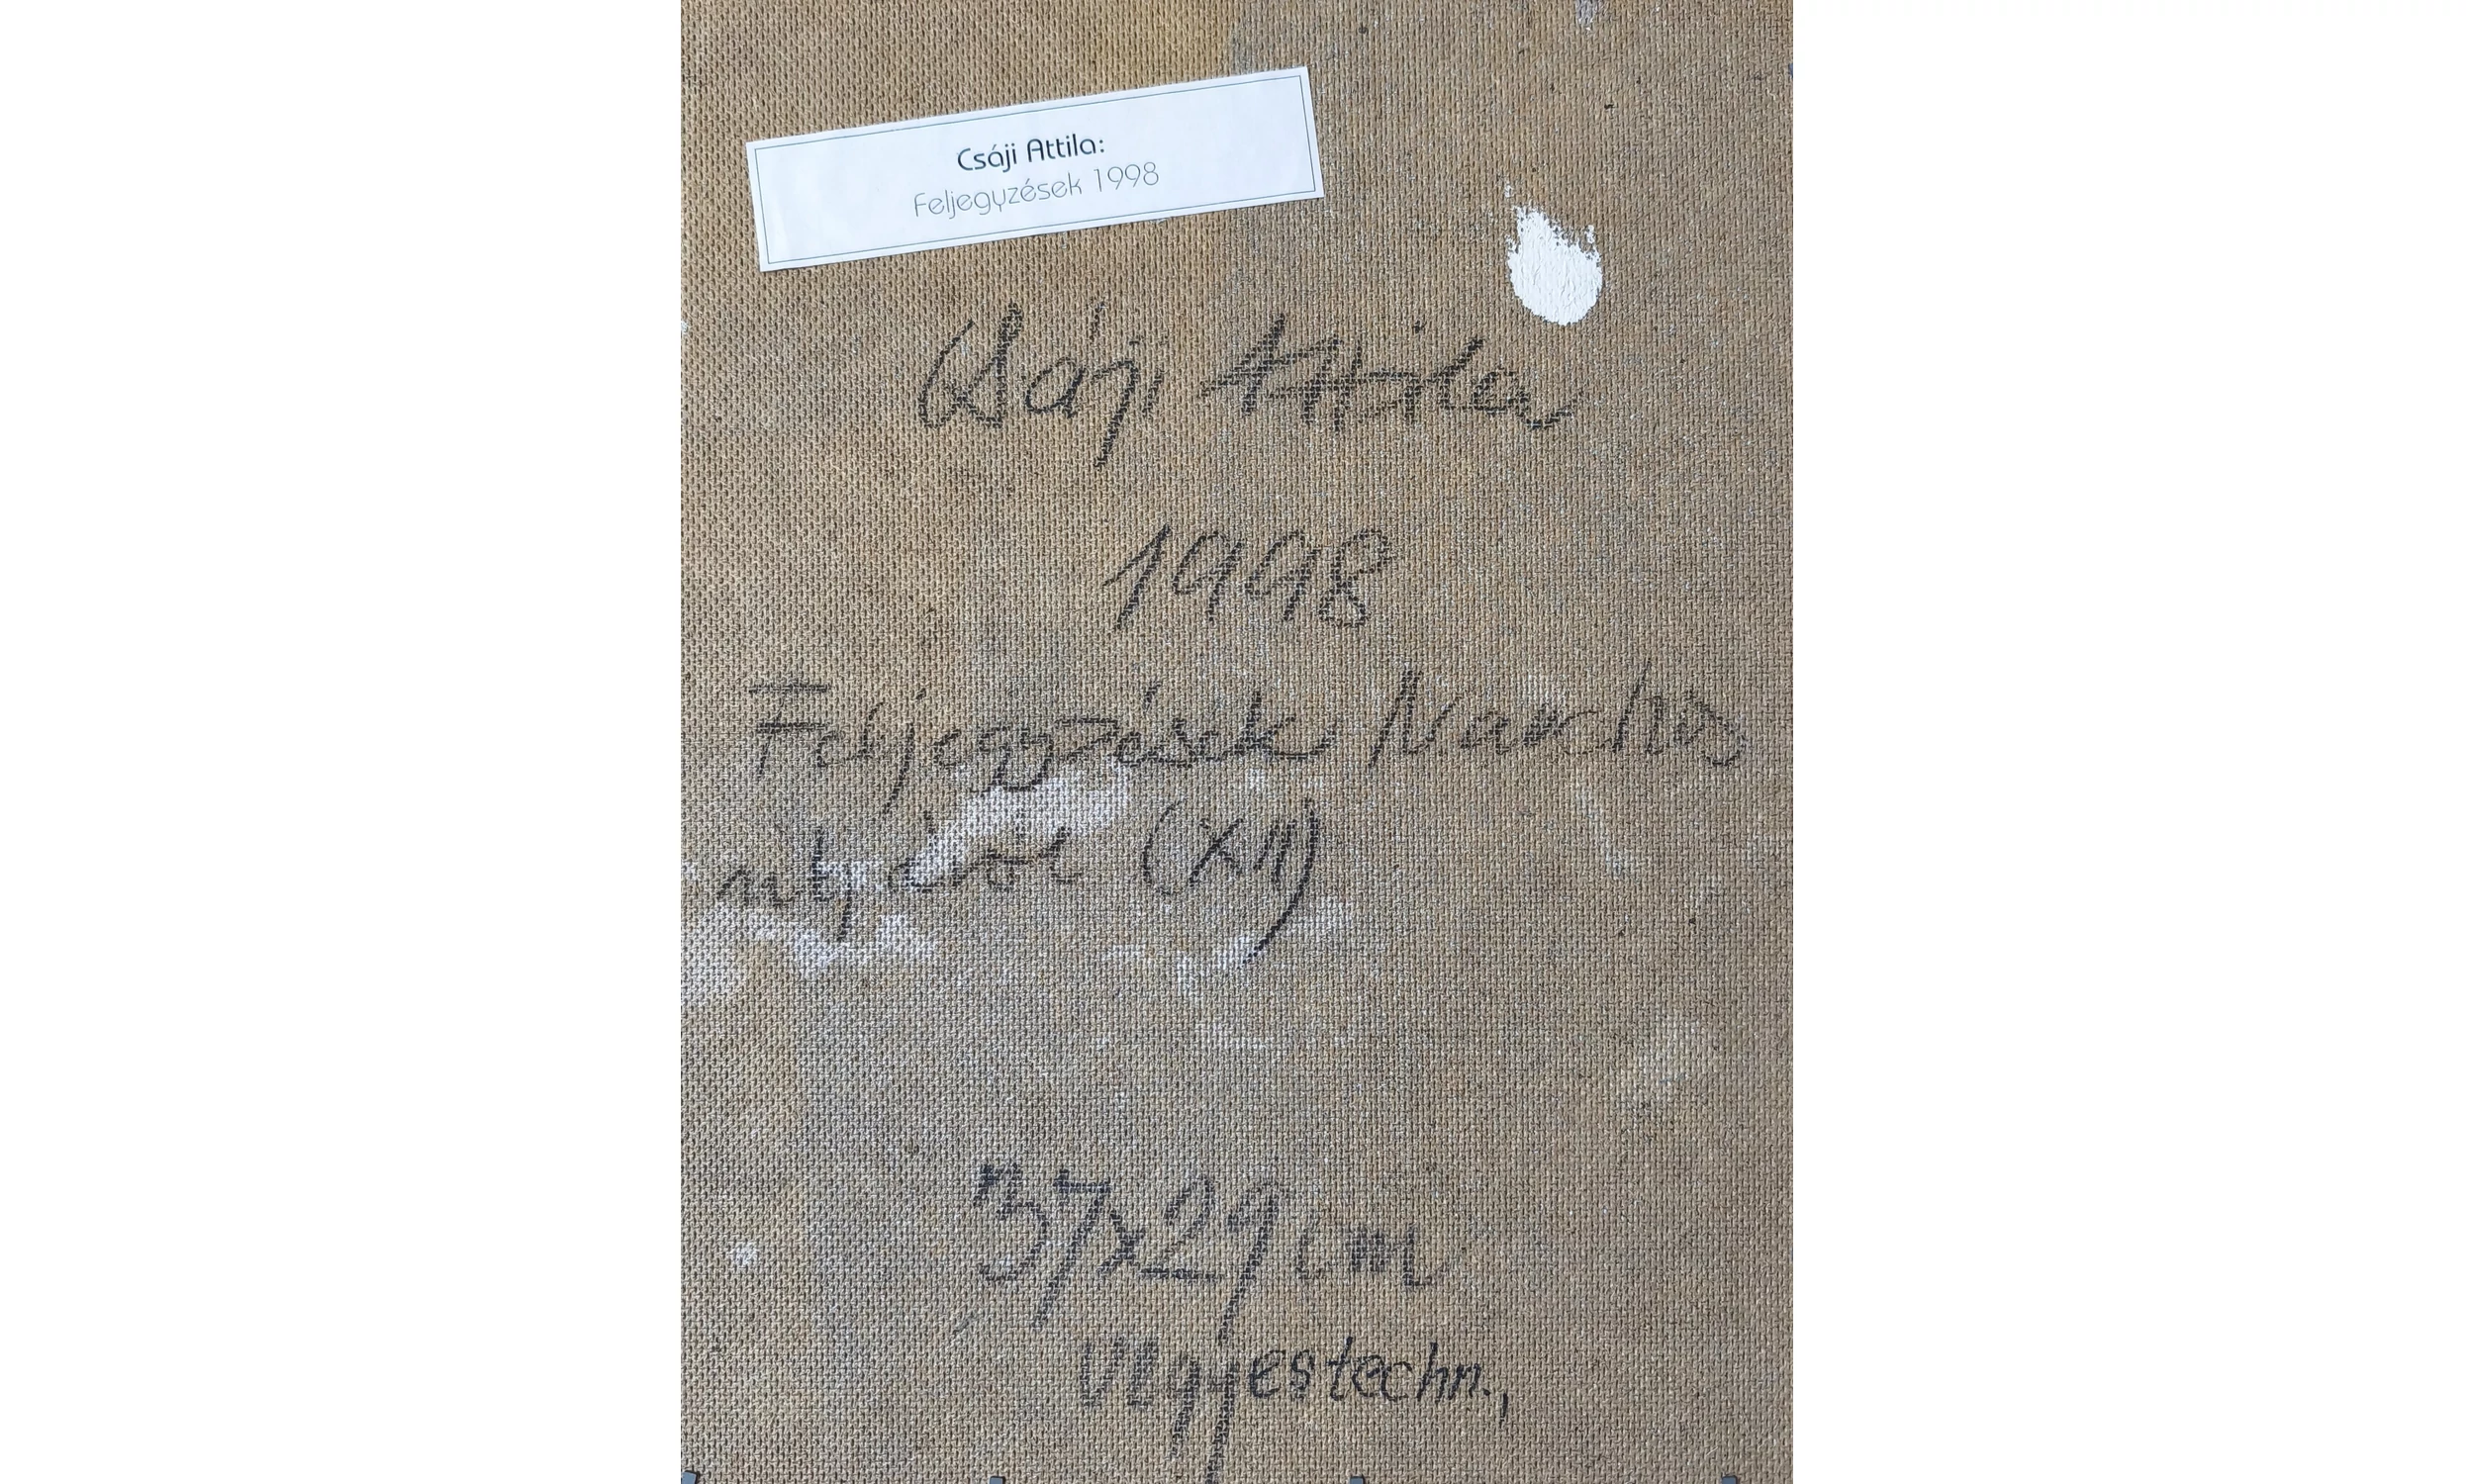 Csáji Attila:
Feljegyzések 1998
Csáji Attila
1998
Feljegyzések
37x29cm
Vegyestechn.,